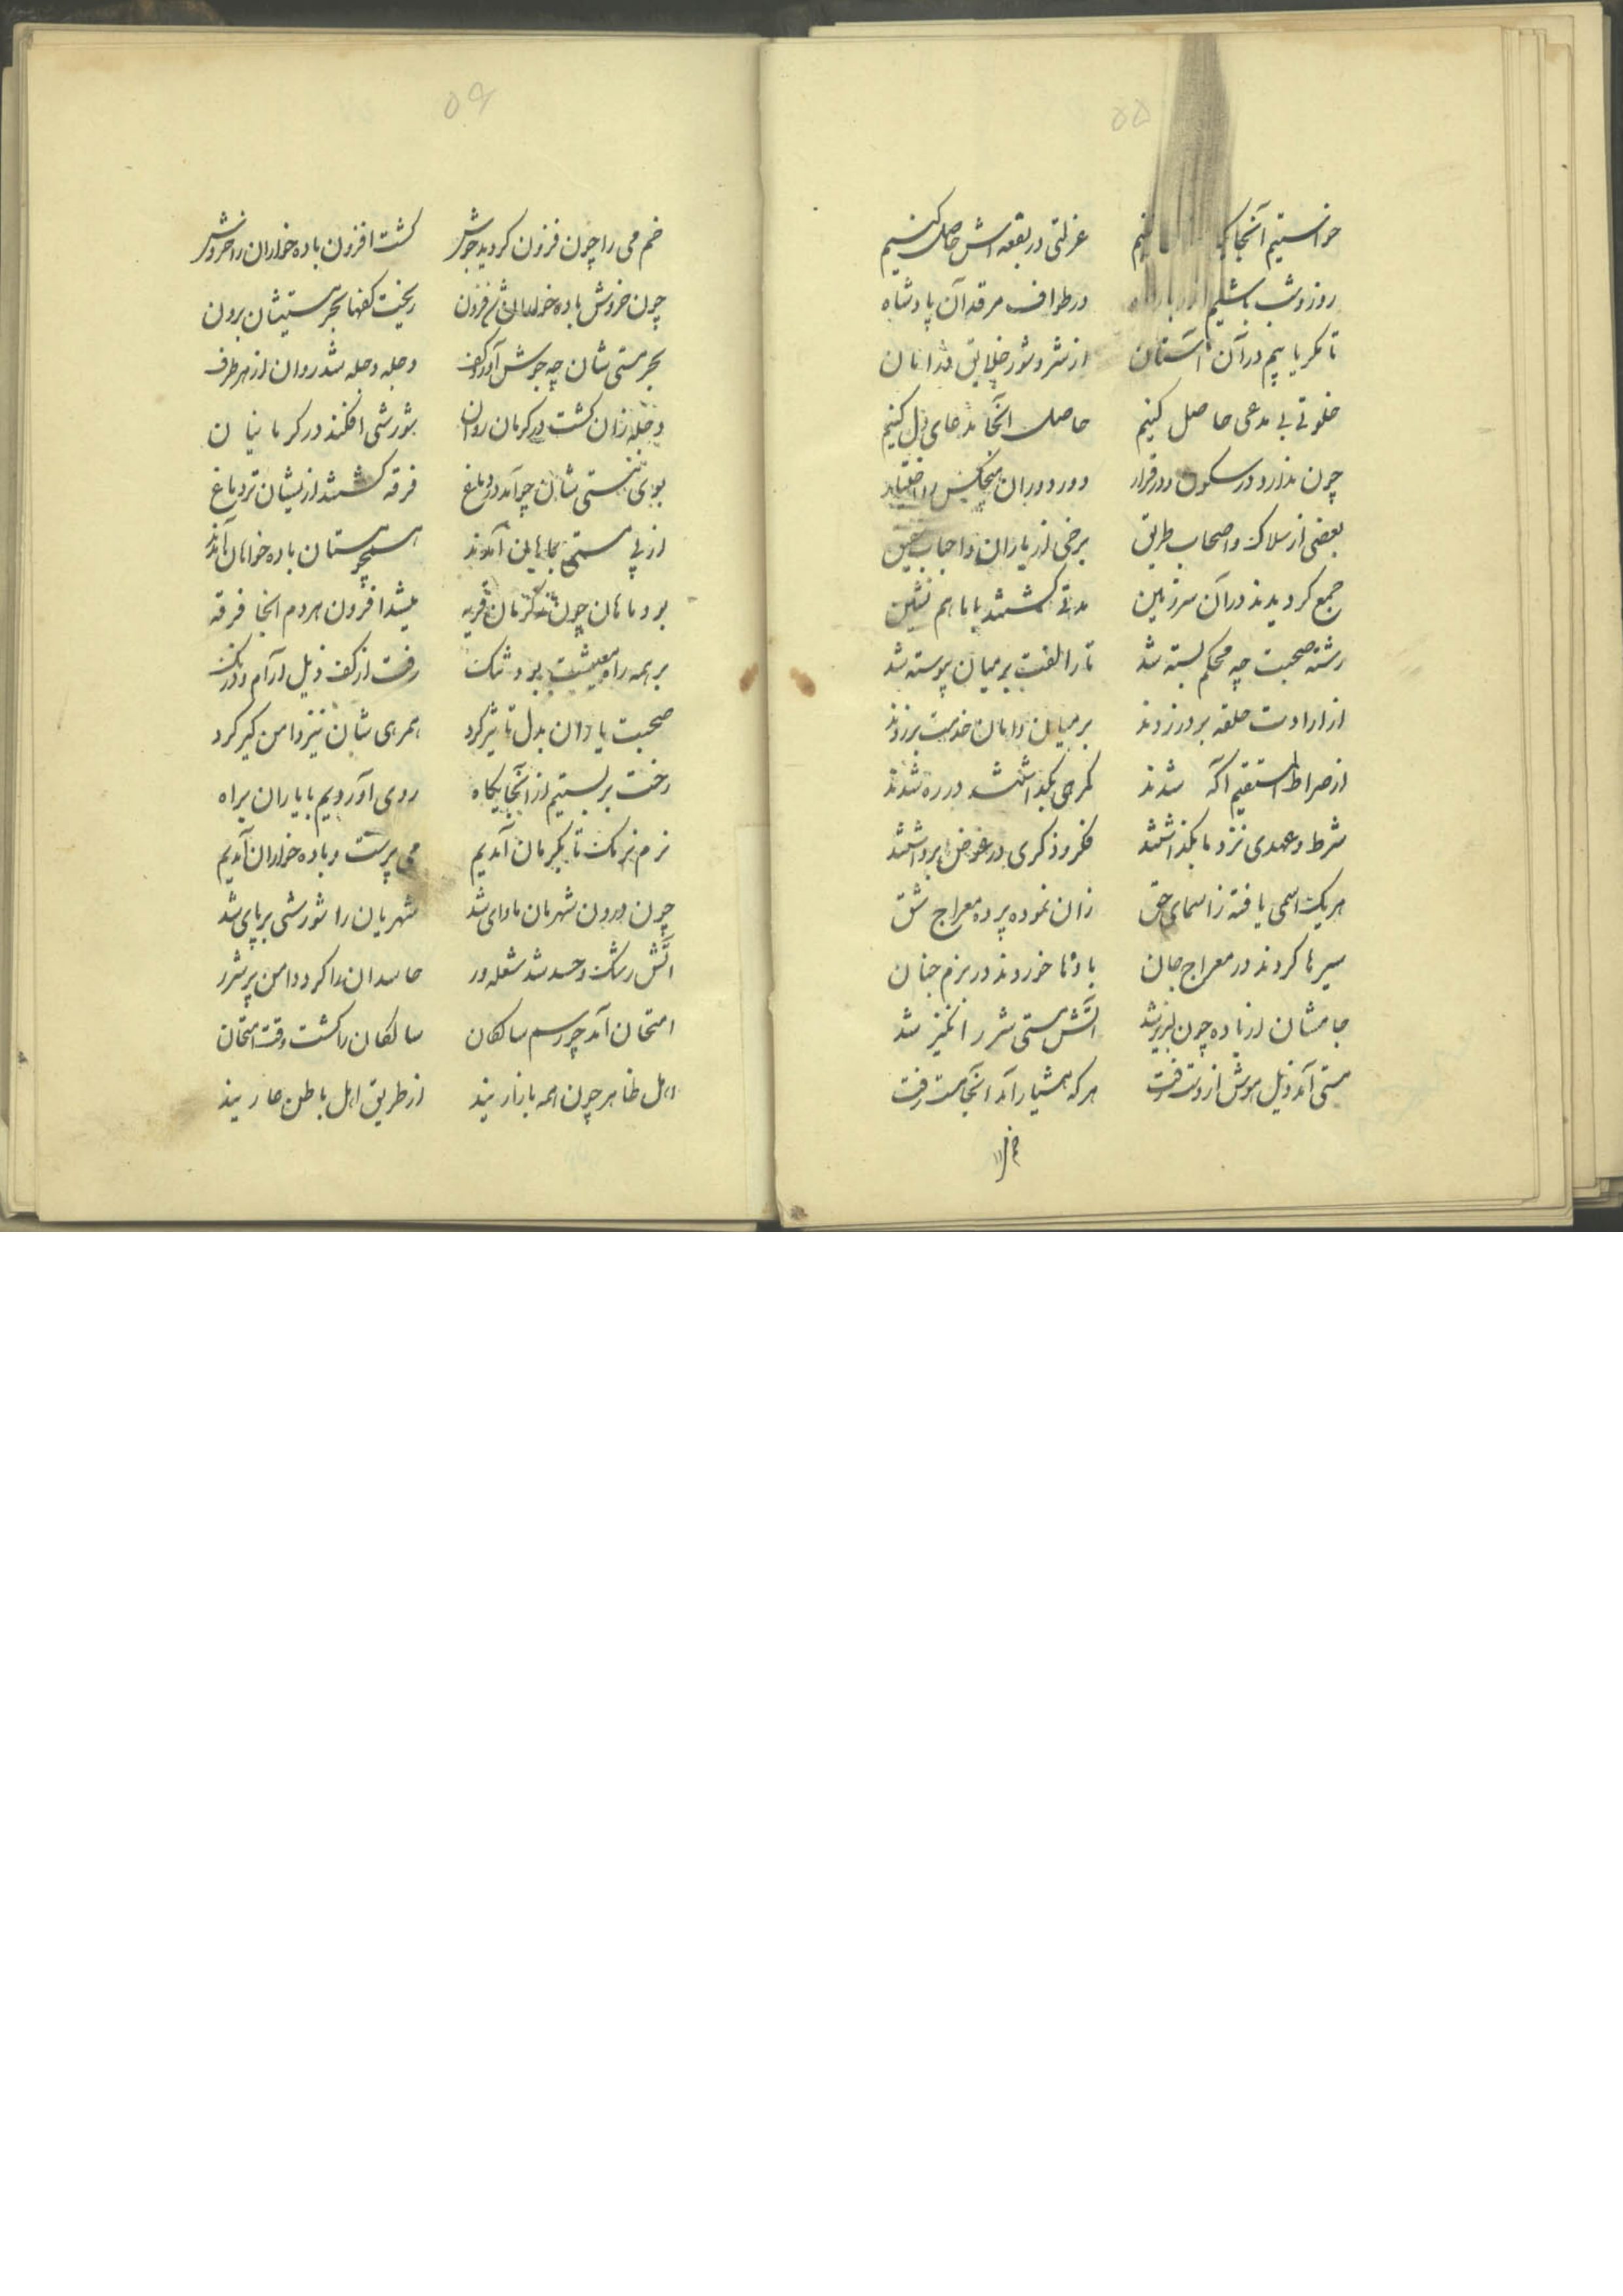 ۵۵
خواستیم آنجا عزلتی در بقعه اش حاصل کنیم
روز و شب باشیم در طواف مرقد آن پادشاه
تا مکر یابیم در آن آستان از شر و شور خلایق در امان
خلوتی بی مدعی حاصل کنیم حاصل آنجا مدعای دل کنیم
چون ندارد در سکون و در قرار دور دوران هیچکس را اختیار
بعضی از سلاک و اصحاب طریق برخی از یاران و احباب
جمع کردیدند در آن سرزمین مدتی کشتند با ما هم نشین
رشته صحبت چه محکم بسته شد تا را لفت بر میان پیوسته شد
از ارادت حلقه بر در زدند بر میان دامان خدمت بر زدند
از صراط المستقیم آکه شدند کمرهی بکذاشتند در ره شدند
شرط و عهدی نزد ما بکذاشتند فکر و ذکری در عوض برداشتند
هر یک اسمی یافته ز اسمای حق زان نموده پرده معراج شق
سیرها کردند در معراج جان بادها خوردند در بزم جنان
جامشان از باده چون لبریز شد آتش مستی شرر انکیز شد
مستی آمد ذیل هوش از دست رفت هر که هشیار آمد آنجا مست رفت
خم
۵۶
خم می را چون فزون کردید جوش کشت افزون باده خواران را خروش
چون خروش باده خواران شد فزون ریخت کفها بحر مستیشان برون
بحر مستی شان چه جوش آورد و کف دجله دجله شد روان از هر طرف
دجله زان کشت در کرمان روان شورشی افکند در کرمانیان
بوی مستی شان چو آمد در دماغ فرقه کشتند از یشان تر دماغ
از پی مستی بماهان آمدند همچو مستان باده خواهان آمدند
بود ماهان چون ز کرمان قریه میشد افزون هر دم آنجا فرقه
بر همه راه معیشت بود تنک رفت از کف ذیل آرام و درنک
صحبت یاران بدل تاثیر کرد همرهی شان نیز دامن کیر کرد
رخت بر بستیم از آنجایکاه روی آوردیم با یاران براه
نرم نرمک تا بکرمان آمدیم می پرست و باده خواران آمدیم
چون درون شهرمان ماوای شد شهریان را شورشی بر پای شد
آتش رشک و حسد شد شعله ور حاسدان را کرد دامن پر شرر
امتحان آمد چو رسم سالکان سالکان را کشت وقت امتحان
اهل ظاهر چون همه بازاریند از طریق اهل باطن عاریند